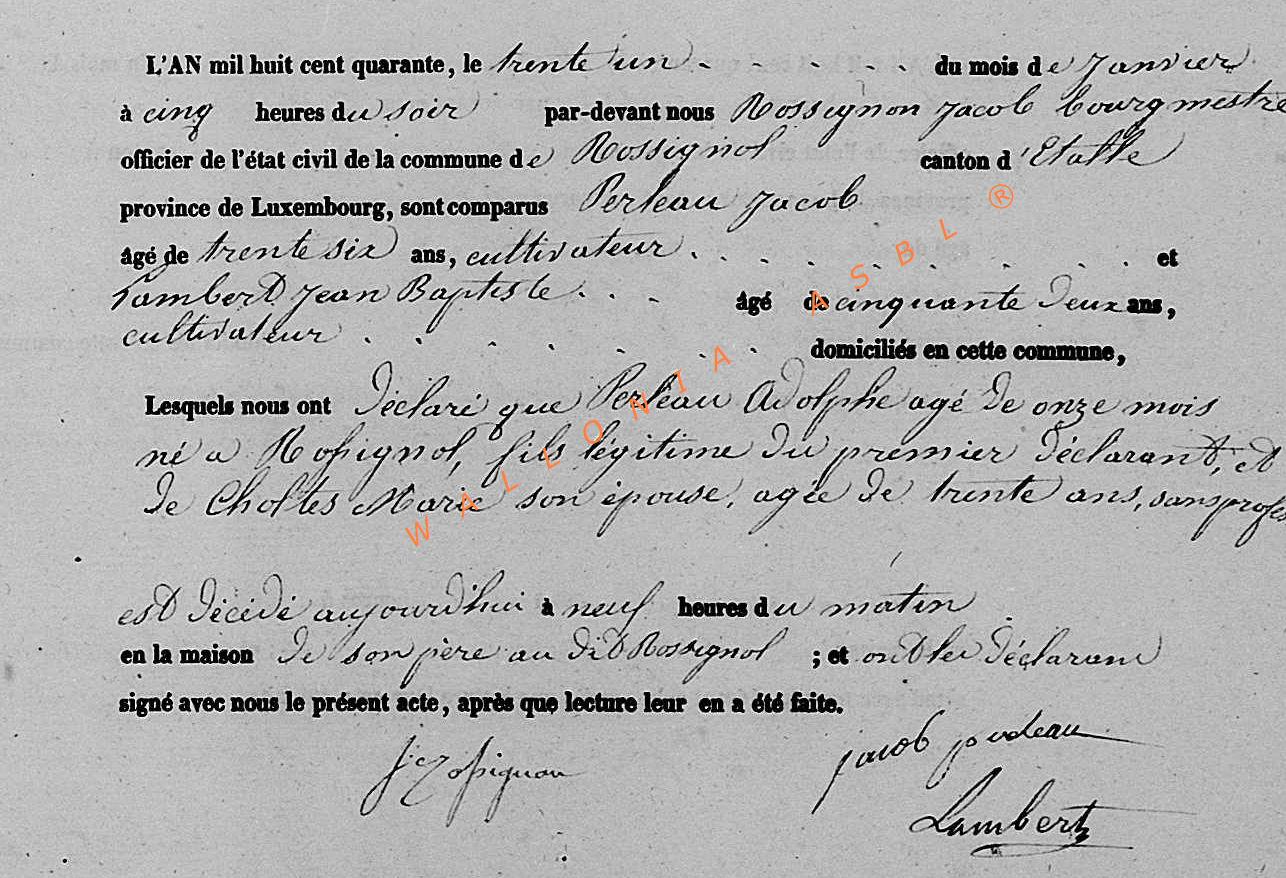 L'AN mil huit cent quarante, le trente un . . . . . . du mois de Janvier
à cinq heures du soir par-devant nous Rossignon Jacob bourgmestre
officier de l'état civil de la commune de Rossignol canton d'Etalle
province de Luxembourg, sont comparus Perleau Jacob
âgé de trente six ans, cultivateur . . . . . . . . . et
Lambert Jean Baptiste . . . âgé de cinquante deux ans,
cultivateur . . . . . . . . domiciliés en cette commune,
Lesquels nous ont déclaré que Perleau Adolphe agé de onze mois
né a Rossignol, fils légitime du premier déclarant, et
de Choltes Marie son épouse, agée de trente ans, sans profes
est décédé aujourd'hui à neuf heures du matin
en la maison de son père au dit Rossignol ; et ont les déclarant
signé avec nous le présent acte, après que lecture leur en a été faite.
jacob
Jc Rossignon
Lambert
WALLONIA ASBL ®